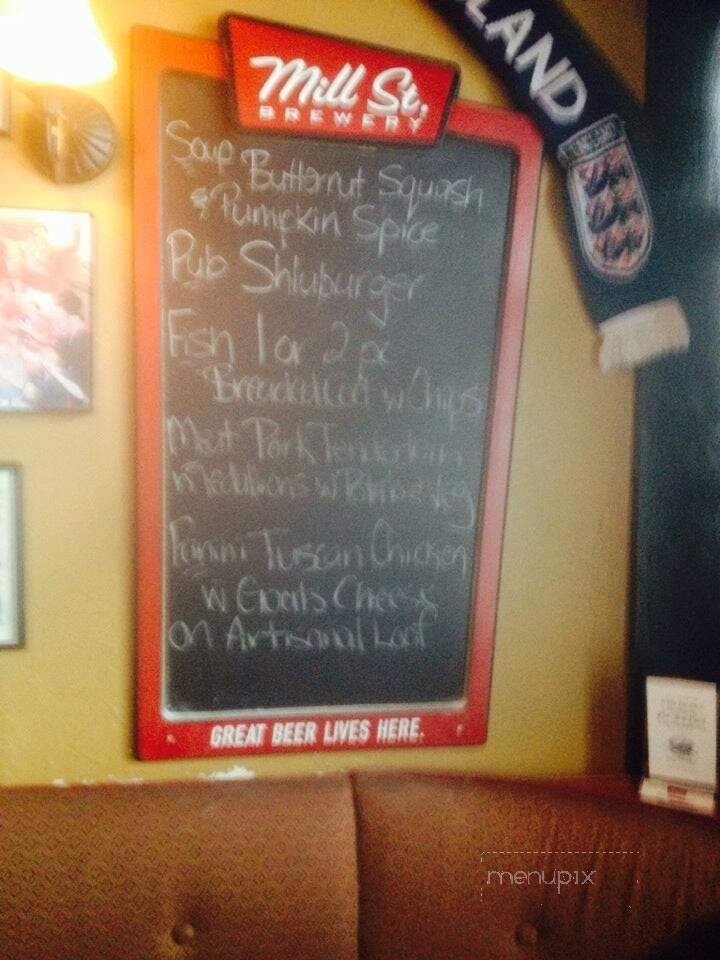 LAND
Mill St.
BREWERY
Soup Butternut Squash
& Pumpkin Spice
Pub Shluburger
Fish 1 or 2 pc
Breaded Cod w Chips
Meat Pork Tenderloin
Medallions w Potatoe Veg
Panini Tuscan Chicken
w Goats Cheese
on Artisanal Loaf
GREAT BEER LIVES HERE.
menupix